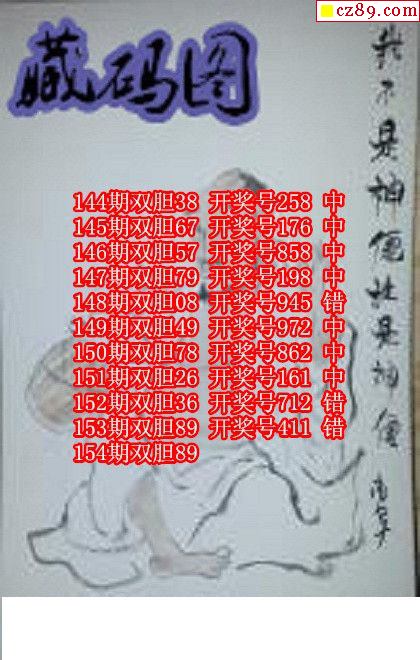 cz89.com
藏码图
我不是神仙谁是神仙
144期双胆38 开奖号258 中
145期双胆67 开奖号176 中
146期双胆57 开奖号858 中
147期双胆79 开奖号198 中
148期双胆08 开奖号945 错
149期双胆49 开奖号972 中
150期双胆78 开奖号862 中
151期双胆26 开奖号161 中
152期双胆36 开奖号712 错
153期双胆89 开奖号411 错
154期双胆89